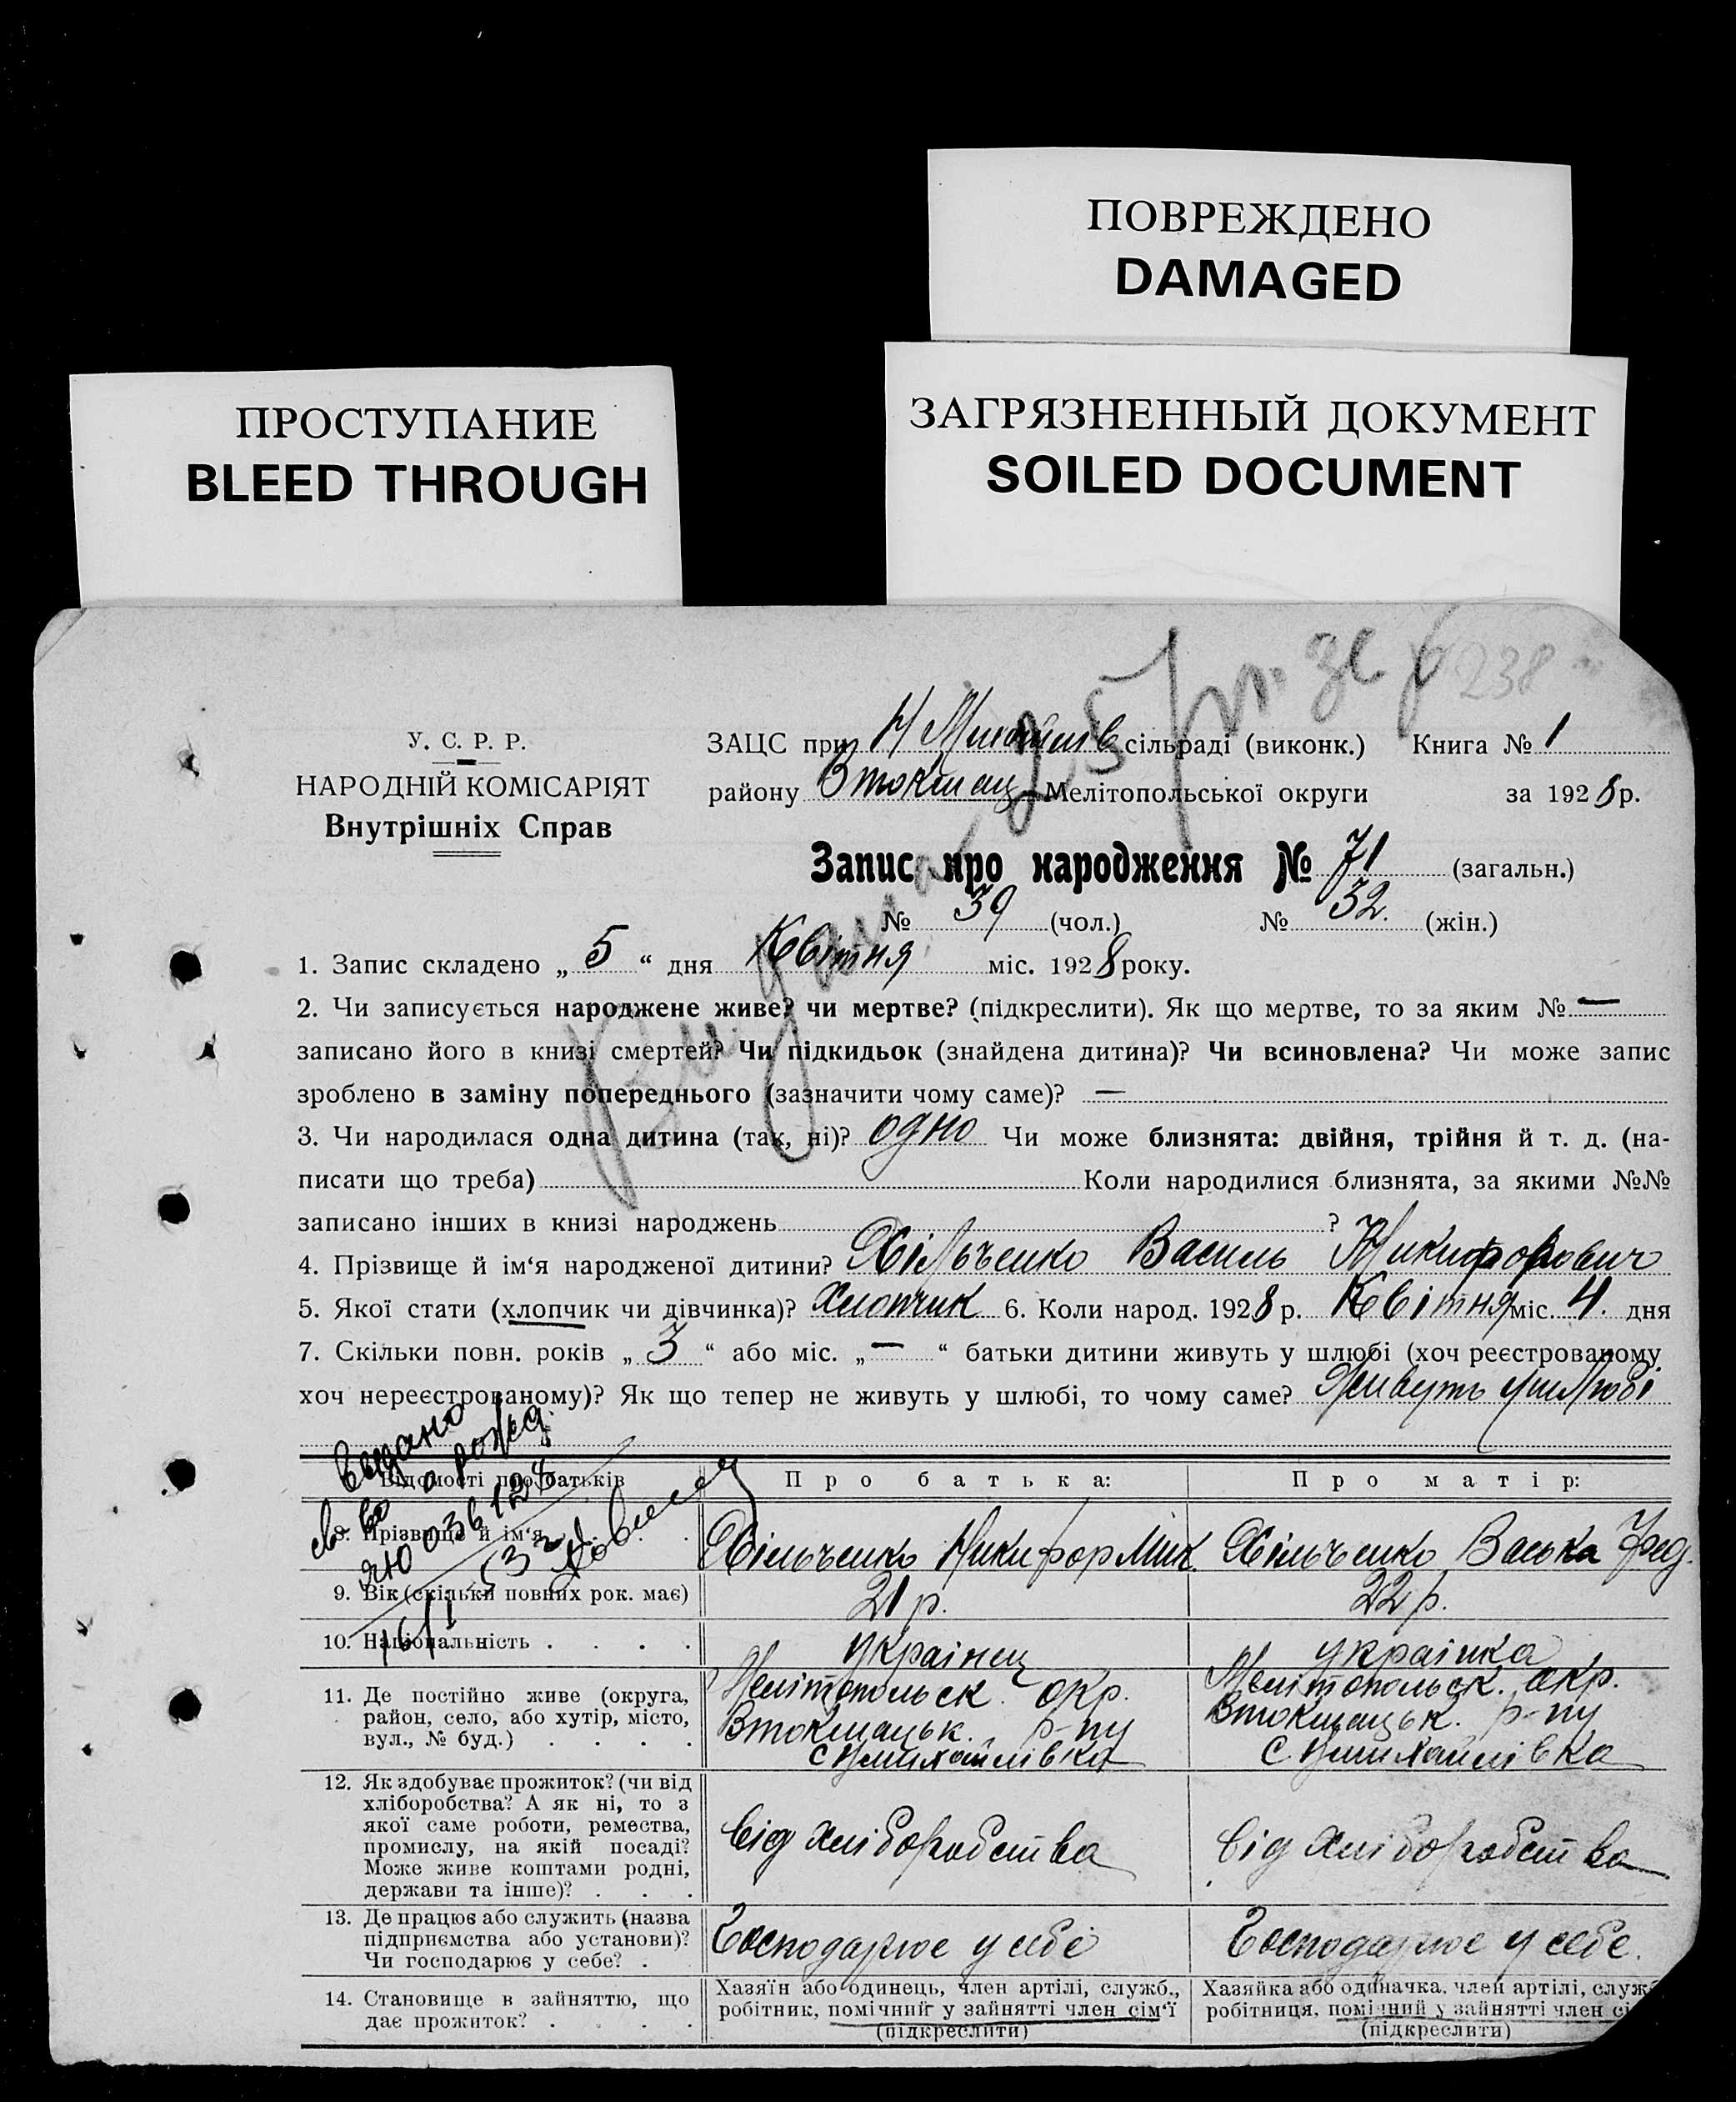 ПОВРЕЖДЕНО
DAMAGED
ПРОСТУПАНИЕ
BLEED THROUGH
ЗАГРЯЗНЕННЫЙ ДОКУМЕНТ
SOILED DOCUMENT
238
У. С. Р. Р.
НАРОДНІЙ КОМІСАРІЯТ
Внутрішніх Справ
ЗАЦС при сільраді (виконк.) Книга № 1
району Втокмац Мелітопольської округи за 1928 р.
Запис про народження № 71 (загальн.)
№ 39 (чол.) № 32. (жін.)
1. Запис складено „ 5 “ дня Квітня міс. 1928 року.
2. Чи записується народжене живе? чи мертве? (підкреслити). Як що мертве, то за яким № —
записано його в книзі смертей? Чи підкидьок (знайдена дитина)? Чи всиновлена? Чи може запис
зроблено в заміну попереднього (зазначити чому саме)? —
3. Чи народилася одна дитина (так, ні)? одно Чи може близнята: двійня, трійня й т. д. (на-
писати що треба) Коли народилися близнята, за якими №№
записано інших в книзі народжень ?
4. Прізвище й ім‘я народженої дитини? Хільченко Василь Никифорович
5. Якої стати (хлопчик чи дівчинка)? Хлопчик 6. Коли народ. 1928 р. Квітня міс. 4. дня
7. Скільки повн. років „ 3 “ або міс. „ — “ батьки дитини живуть у шлюбі (хоч реєстрованому
хоч нереєстрованому)? Як що тепер не живуть у шлюбі, то чому саме? Живуть у шлюбі
Видано
св-во о рожд.
Відомості про батьків Про батька: Про матір:
8. Прізвище й ім‘я Хільченко Никифор Мих. Хільченко Васька Фед.
9. Вік (скільки повних рок. має) 21 р. 22 р.
10. Національність . . . . українец українка
11. Де постійно живе (округа, район, село, або хутір, місто, вул., № буд.) . . . .
Мелітопольск. окр.
Втокмацьк. р-ну
с Нмихайлівка
Мелітопольск. окр.
Втокмацьк. р-ну
с. Нмихайлівка
12. Як здобуває прожиток? (чи від
хліборобства? А як ні, то з
якої саме роботи, ремества,
промислу, на якій посаді?
Може живе коштами родні,
держави та інше)? . . .
від хліборобства
від хліборобства
13. Де працює або служить (назва
підприємства або установи)?
Чи господарює у себе? .
Господарює у себе
Господарює у себе.
14. Становище в зайняттю, що
дає прожиток? . . . .
Хазяїн або одинець, член артілі, служб.,
робітник, помічний у зайнятті член сім‘ї
(підкреслити)
Хазяйка або одиначка, член артілі, служ
робітниця, помічний у зайнятті член сі
(підкреслити)